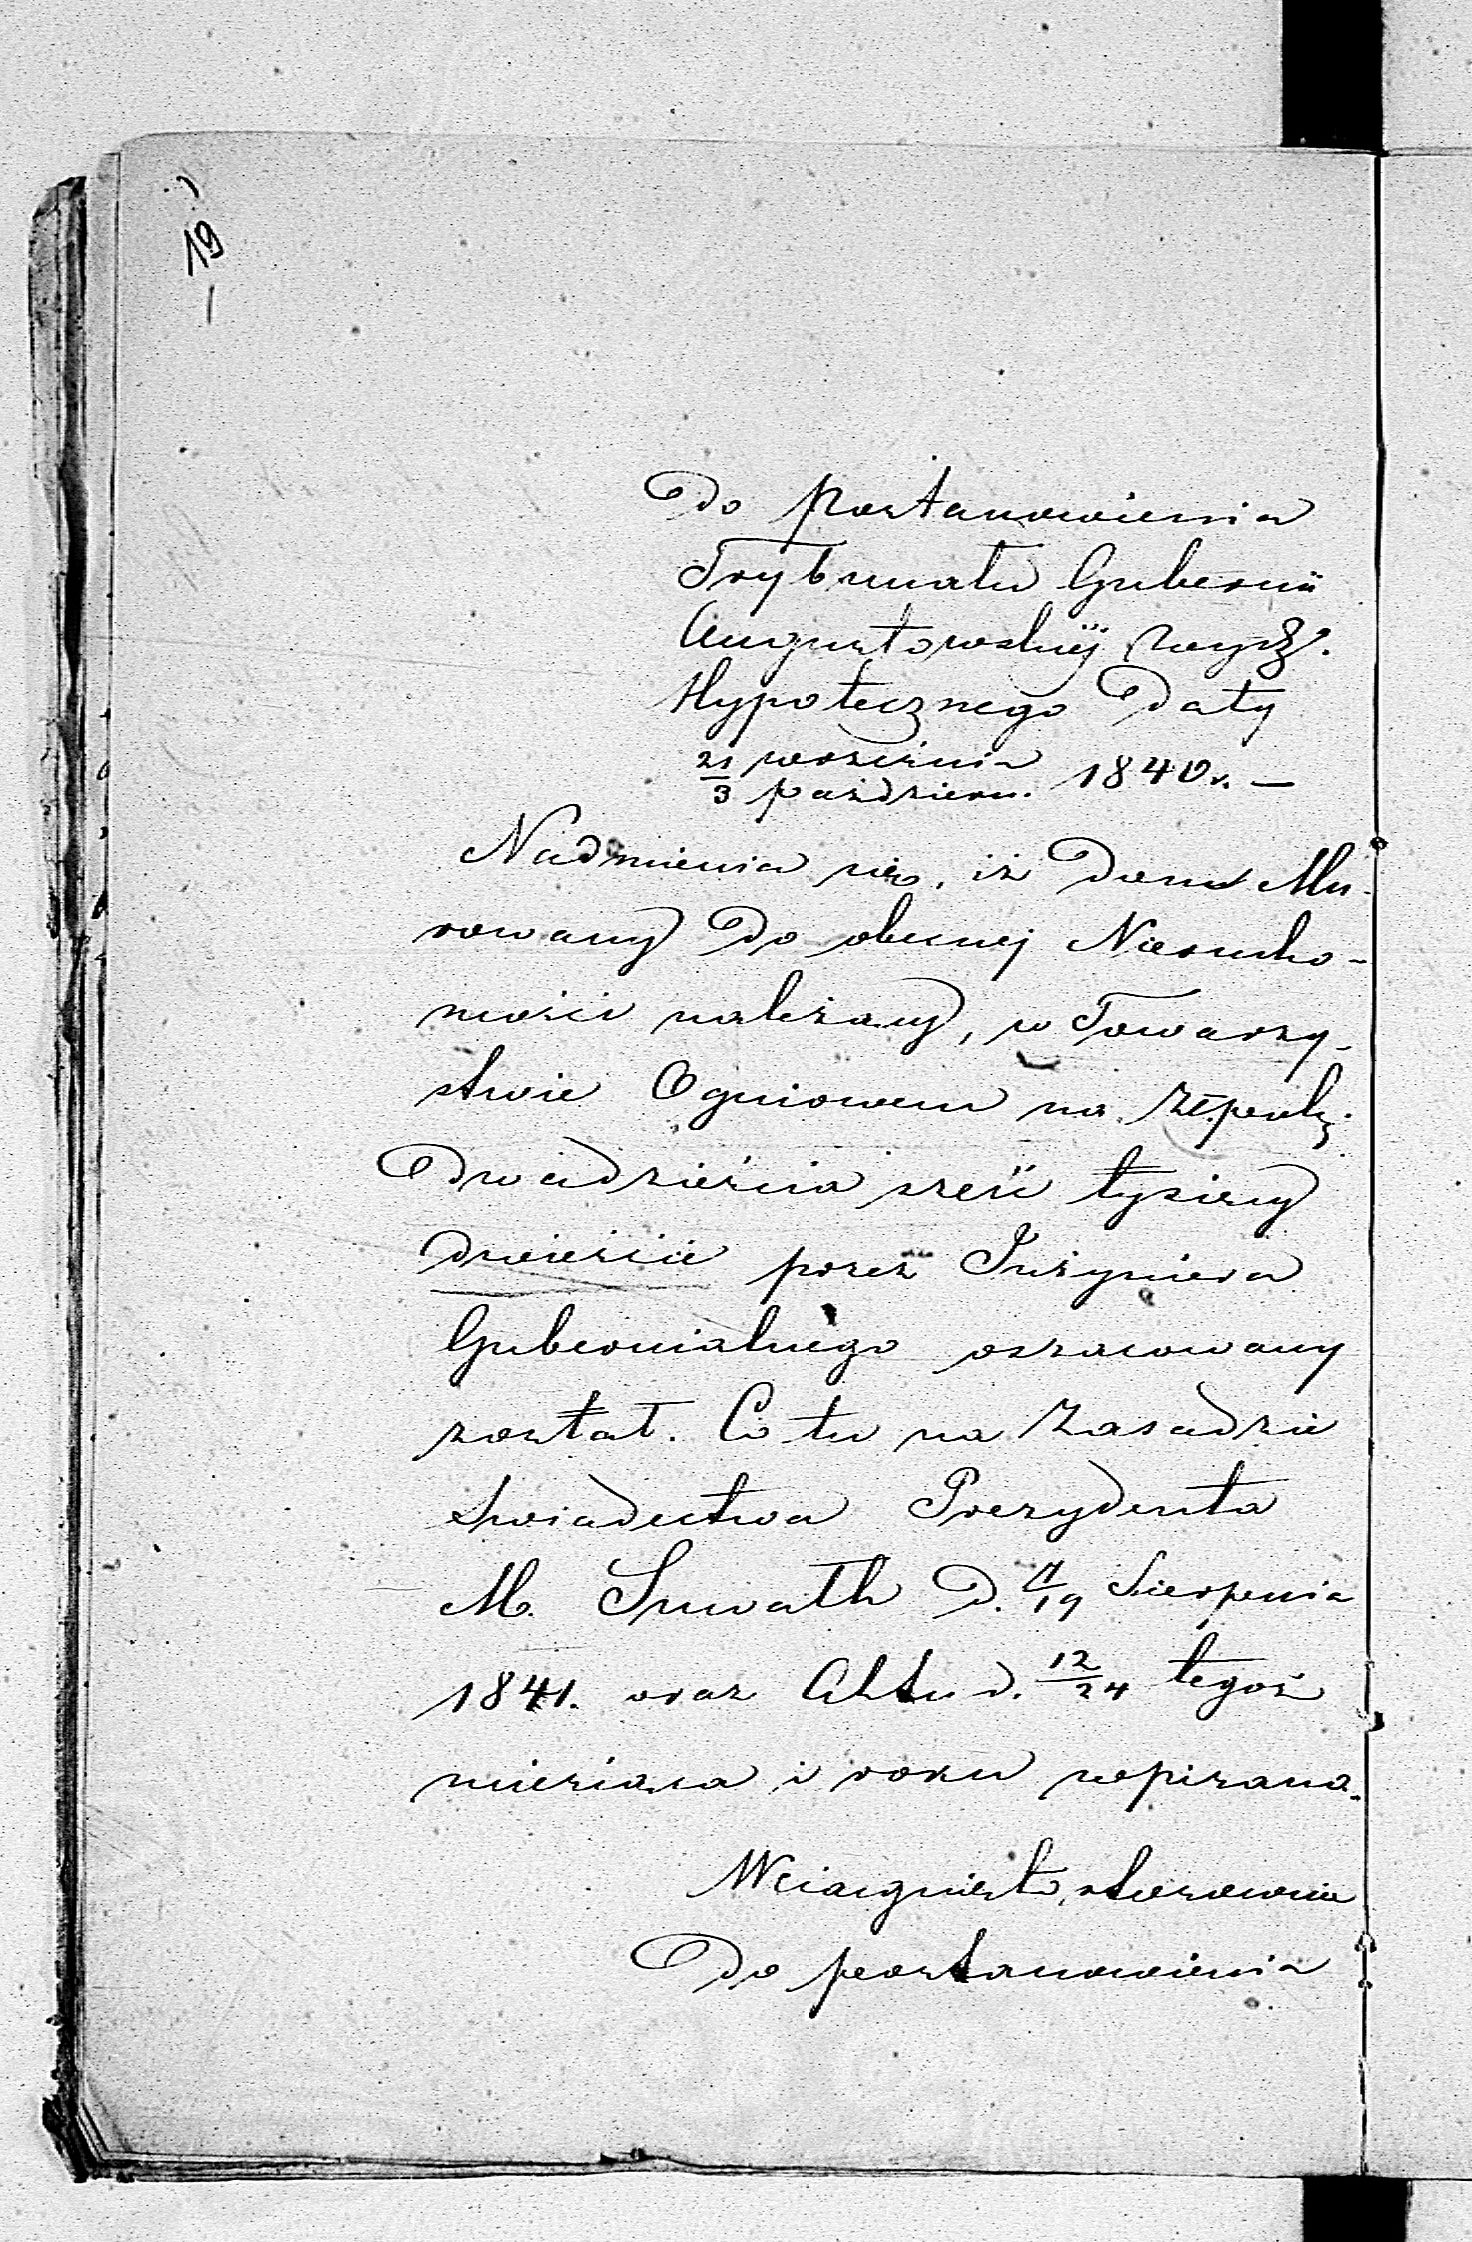 19
Do Postanowienia
Trybunału Gubernii
Augustowskiej Wydz.
Hypotecznego Daty
21/3 września/październ. 1840r. —
Nadmienia się, iż Dom Mu-
rowany Do obecnej Nierucho-
mości należący, w Towarzy-
stwie Ogniowem na Złpolk:
Dwadzieścia sześć tysięcy
dwieście przez Inżyniera
Gubernialnego oszacowany
został. Co tu na Zasadzie
Świadectwa Prezydenta
M. Suwałk D. 7/19 Sierpnia
1841. oraz Aktu d. 12/24 tegoż
miesiąca i roku wpisano.
Wciągnięto stosownie
Do postanowienia